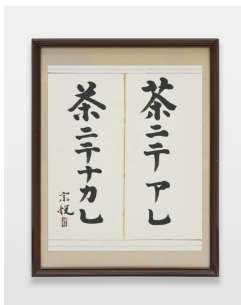 茶ニテアレ
茶ニテナカレ
宗悦